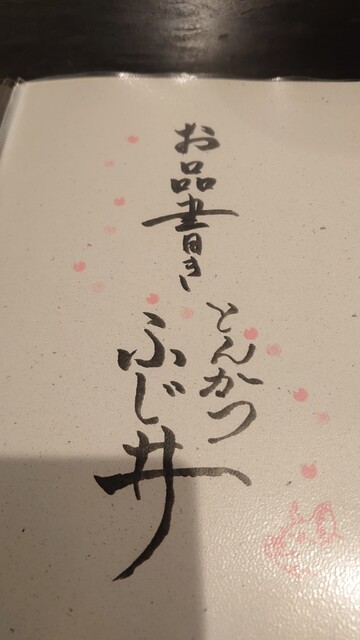 お品書き
とんかつ
ふじ井